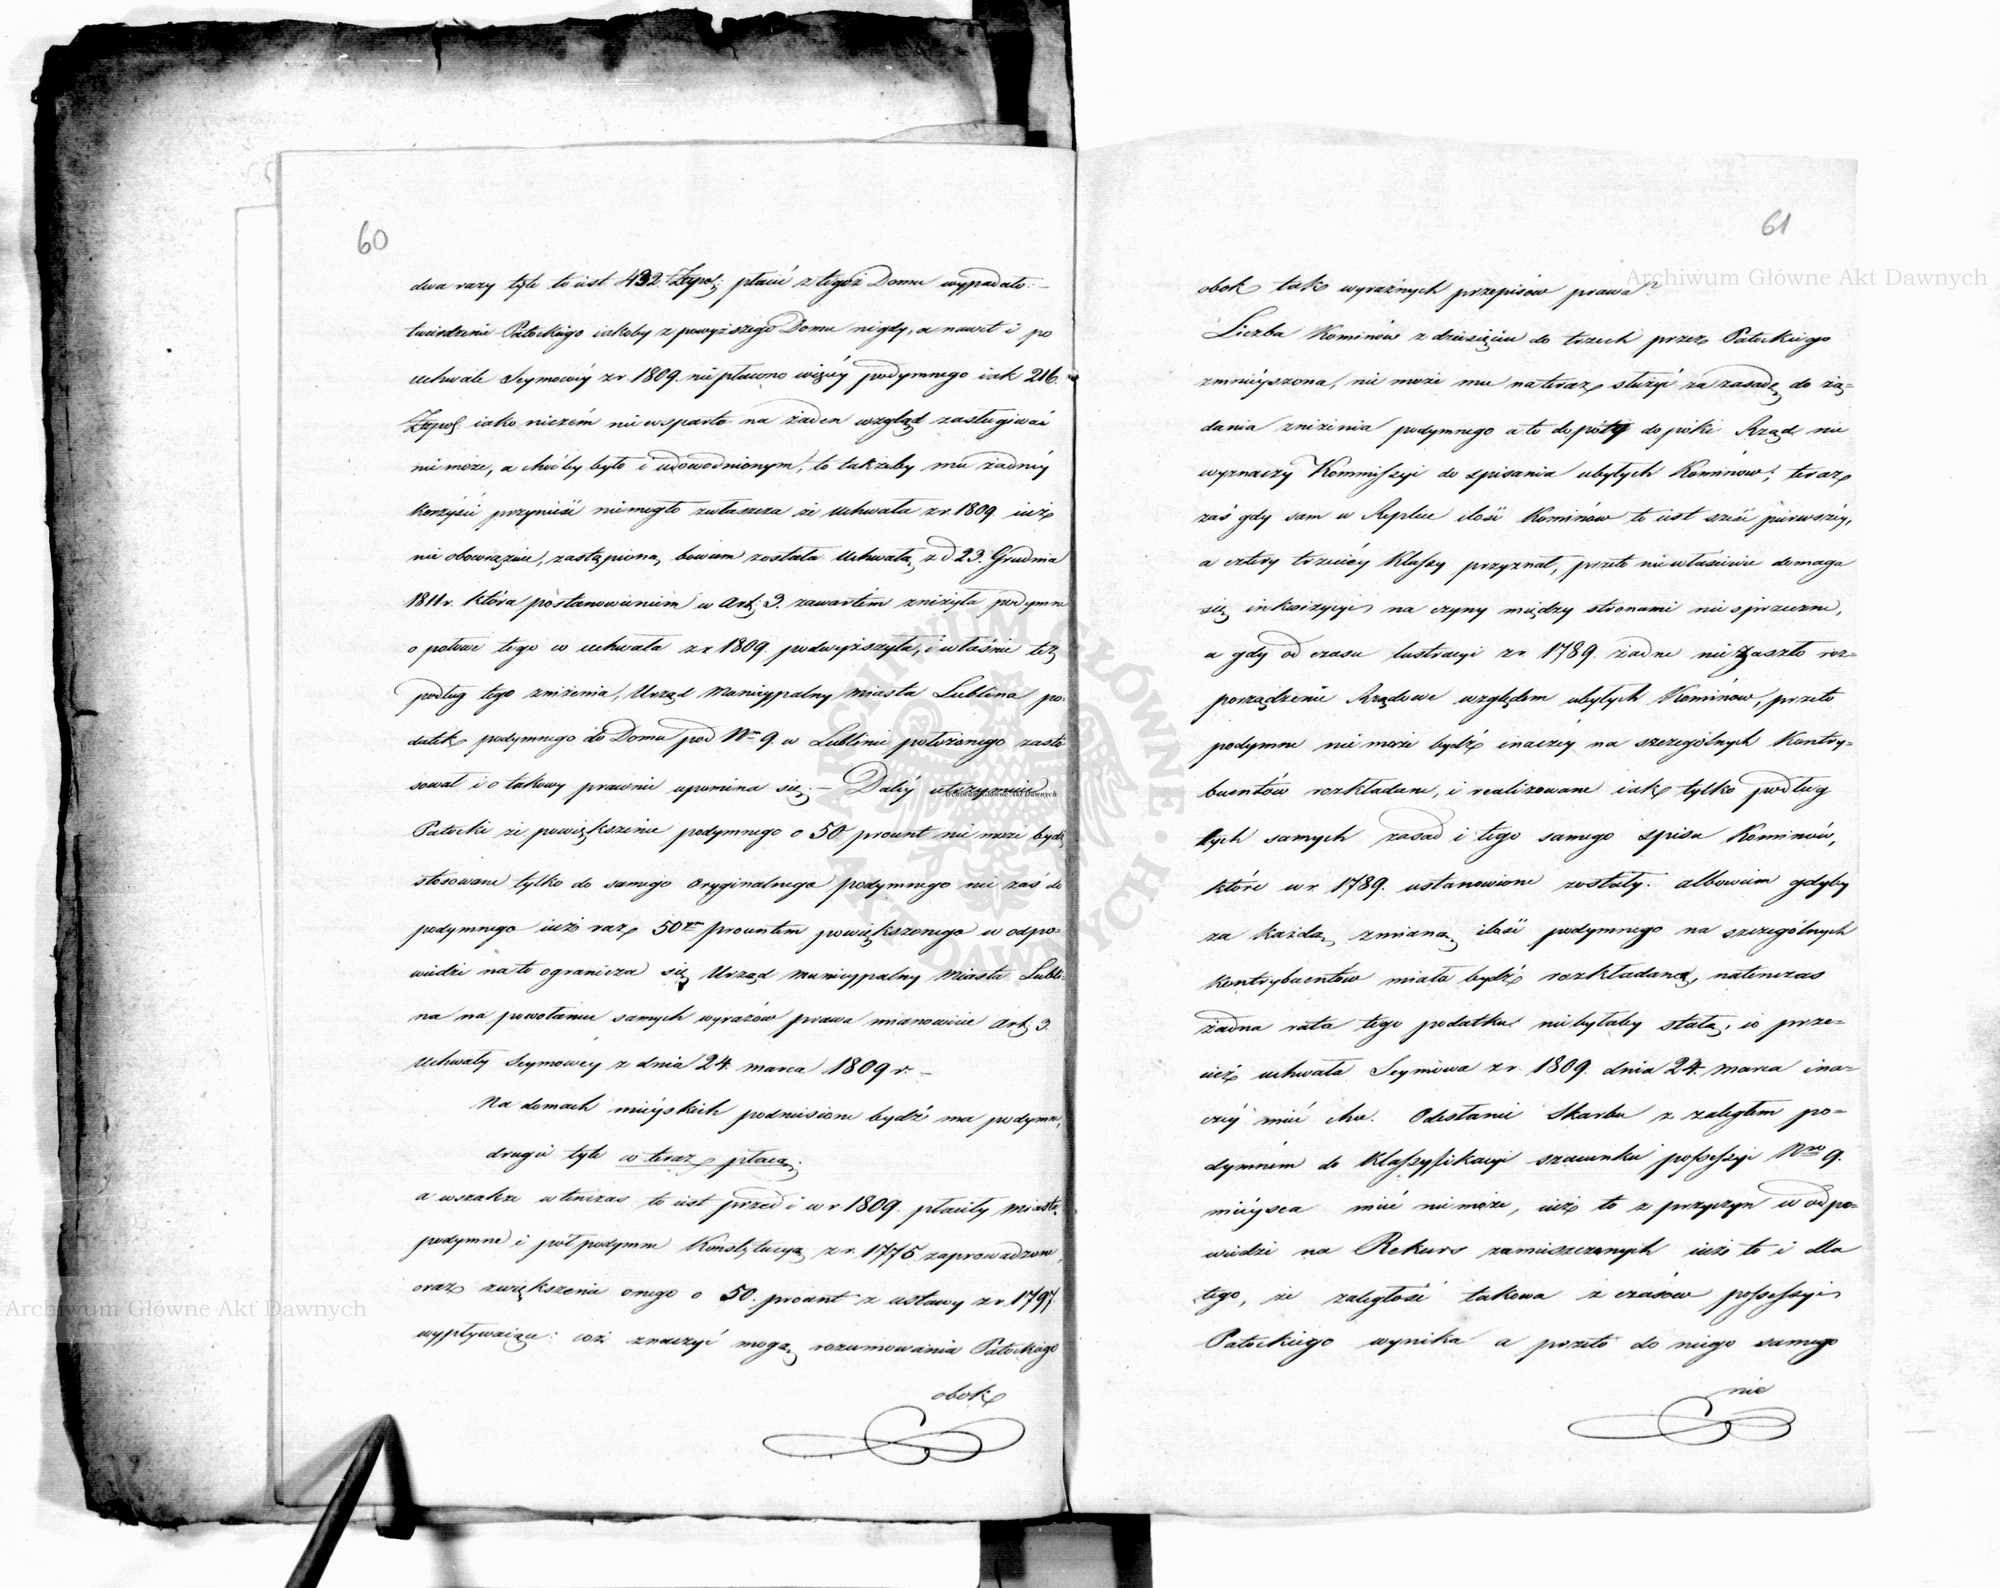 60
dwa razy tyle to iest 432. Złzpol: płacić z tegoż Domu wypadało. –
twierdzenie Patockiego iakoby z powyższego Domu nigdy, a nawet i po
uchwale Seymowéy z r. 1809. nie płacono więcéy podymnego iak 216.
Złzpol iako niczém nie wsparte na żaden wzgląd zasługiwać
nie może, a choćby było i udowodnionym, to takżeby mu żadnéy
korzyści przynieść niemogło zwłaszcza że uchwała z r. 1809 iuż
nie obowiązuie, zastąpioną bowiem została Uchwałą z d 23. Grudnia
1811 r. która postanowieniem w Art: 3. zawartém zniżyła podymne
o połowę tego co uchwała z r. 1809. podwyższyła, i właśnie też
podług tego zniżenia, Urząd Municypalny Miasta Lublina po-
datek podymnego do Domu pod Nrm 9. w Lublinie położonego zasto
sował i o takowy prawnie upomina się: – Daléy utrzymuie
Patocki że powiększenie podymnego o 50 procent nie może bydź
stosowane tylko do samego oryginalnego podymnego nie zaś do
podymnego iuż raz 50tm procentem powiększonego w odpo-
wiedzi na to ogranicza się Urząd Municypalny Miasta Lubli-
na na powołaniu samych wyrazów prawa mianowicie Art: 3.
Uchwały Seymowéy z dnia 24. marca 1809 r. –
Na domach mieyskich podniesione bydź ma podymne,
drugie tyle co teraz płacą:
a wszakże wtenczas to iest przed i w r. 1809. płaciły Miasta
podymne i pół podymne Konstytucyą z r. 1775 zaprowadzone,
oraz zwiększenie onego o 50. procent z ustawy z r. 1797.
wypływaiące: coż znaczyć mogą rozumowania Patockiego
obok
61
obok tak wyraźnych przepisów prawa?
Liczba Kominów z dziesięciu do trzech przez Patockiego
zmnieyszona, nie może mu na teraz służyć za zasadę do żą-
dania zniżenia podymnego a to dopóty dopóki Rząd nie
wyznaczy Kommissyi do spisania ubyłych Kominów; teraz
zaś gdy sam w Replice ilość Kominów to iest sześć pierwszéy,
a cztery trzeciéy Klassy przyznał, przeto niewłaściwie domaga
się inkwizycyi na czyny między stronami nie sprzeczne,
a gdy od czasu lustracyi z r. 1789. żadne nie zaszło roz-
porządzenie Rządowe względem ubyłych Kominów, przeto
podymne nie może bydź inaczéy na szczególnych Kontry-
buentów rozkładane, i realizowane iak tylko podług
tych samych zasad i tego samego spisu Kominów,
które w r. 1789. ustanowione zostały. albowiem gdyby
za każdą zmianą ilość podymnego na szczególnych
kontrybuentów miała bydź rozkładaną, natenczas
żadna rata tego podatku niebyłaby stałą; co prze-
cież uchwała Seymowa z r. 1809. dnia 24. Marca ina-
czéy mieć chce. Odesłanie Skarbu z zaległem po-
dymném do klassyfikacyi szacunku possessyi Nro 9.
mieysca mieć nie może, iuż to z przyczyn w odpo-
wiedzi na Rekurs zamieszczonych iuż to i dla
tego, że zaległość takowa z czasów possessyi
Patockiego wynika a przeto do niego samego
nie
Archiwum Główne Akt Dawnych
Archiwum Główne Akt Dawnych
Archiwum Główne Akt Dawnych
ARCHIWUM GŁÓWNE AKT DAWNYCH